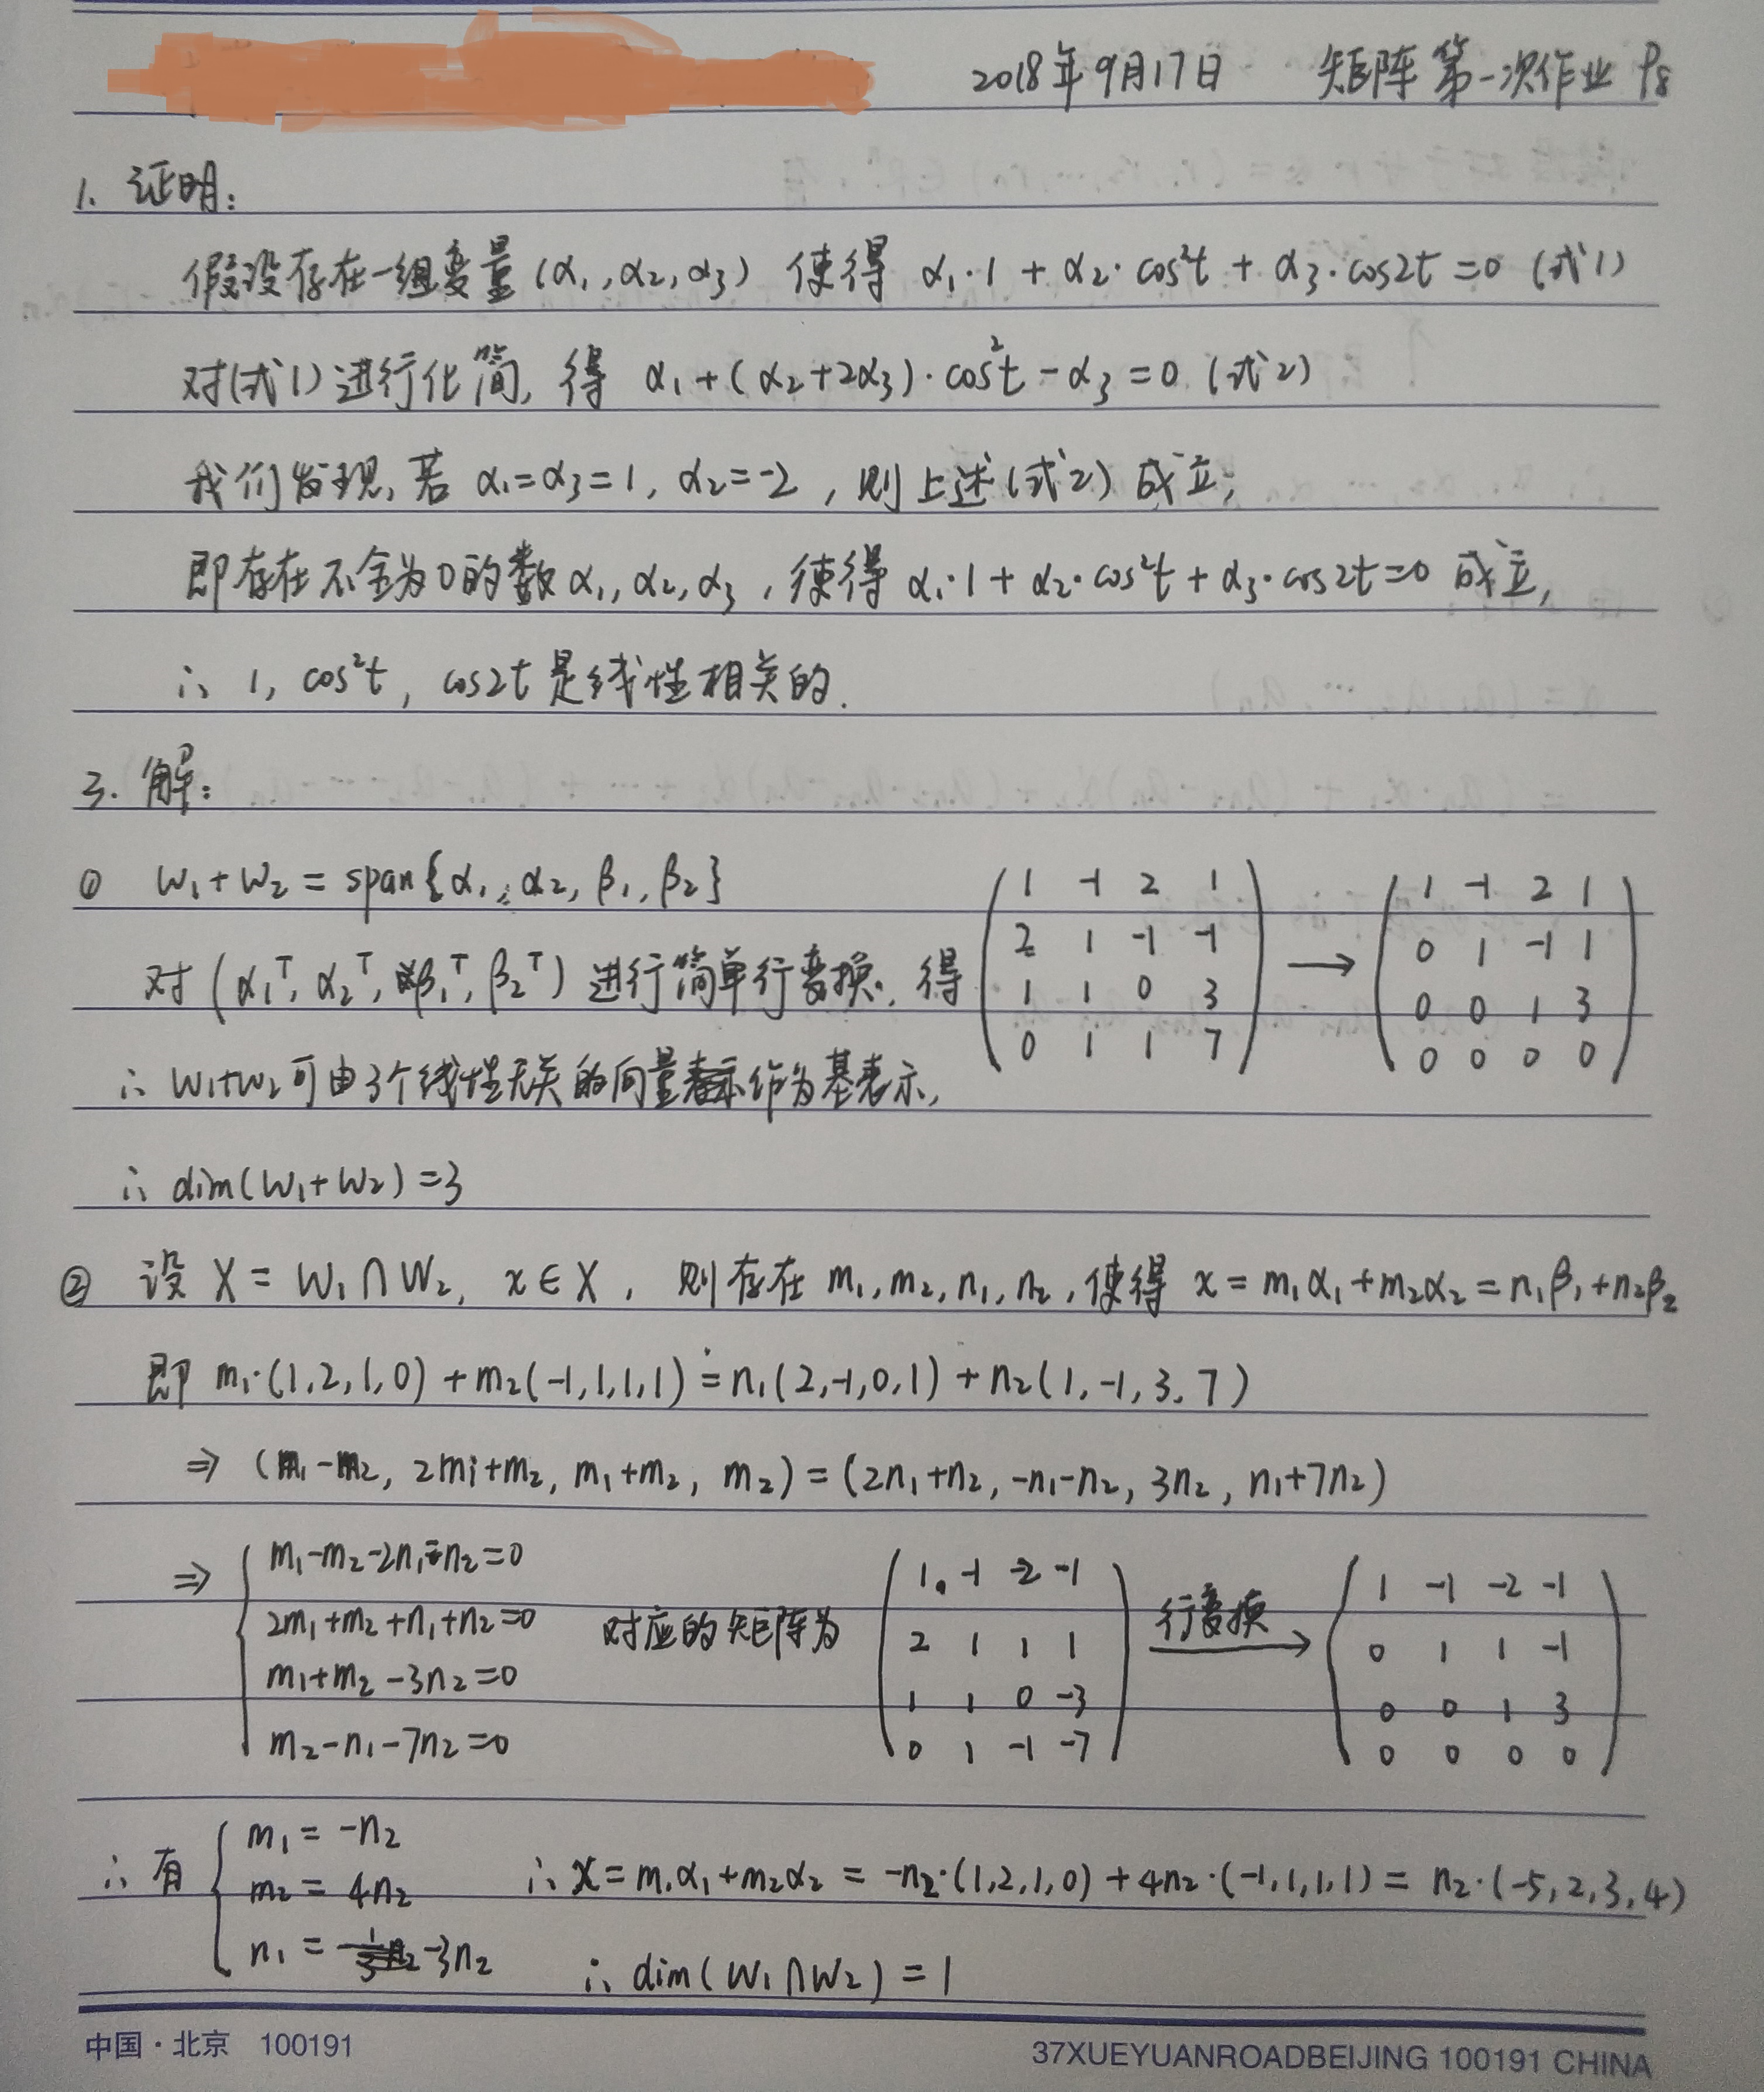 2018年9月17日 矩阵第一次作业 P8
1. 证明:
假设存在一组变量(α₁,α₂,α₃) 使得 α₁·1 + α₂·cos²t + α₃·cos2t = 0 (式1)
对(式1)进行化简, 得 α₁+(α₂+2α₃)·cos²t-α₃=0 (式2)
我们发现, 若 α₁=α₃=1, α₂=-2, 则上述(式2)成立;
即存在不全为0的数α₁,α₂,α₃, 使得 α₁·1+α₂·cos²t+α₃·cos2t=0 成立,
∴ 1, cos²t, cos2t是线性相关的.
3. 解:
① W₁+W₂ = span{α₁, α₂, β₁, β₂}
对(α₁ᵀ, α₂ᵀ, β₁ᵀ, β₂ᵀ)进行简单行变换, 得
1 -1 2 1
2 1 -1 -1
1 1 0 3
0 1 1 7
→
1 -1 2 1
0 1 -1 1
0 0 1 3
0 0 0 0
∴ W₁+W₂可由3个线性无关的向量作为基表示,
∴ dim(W₁+W₂)=3
② 设 X = W₁∩W₂, x∈X, 则存在 m₁,m₂,n₁,n₂, 使得 x=m₁α₁+m₂α₂=n₁β₁+n₂β₂
即 m₁·(1,2,1,0)+m₂(-1,1,1,1)=n₁(2,-1,0,1)+n₂(1,-1,3,7)
⇒ (m₁-m₂, 2m₁+m₂, m₁+m₂, m₂)=(2n₁+n₂, -n₁-n₂, 3n₂, n₁+7n₂)
⇒
m₁-m₂-2n₁-n₂=0
2m₁+m₂+n₁+n₂=0
m₁+m₂-3n₂=0
m₂-n₁-7n₂=0
对应的矩阵为
1 -1 -2 -1
2 1 1 1
1 1 0 -3
0 1 -1 -7
行变换
→
1 -1 -2 -1
0 1 1 -1
0 0 1 3
0 0 0 0
∴有
m₁=-n₂
m₂=4n₂
n₁=-3n₂
∴ x=m₁α₁+m₂α₂=-n₂·(1,2,1,0)+4n₂·(-1,1,1,1)=n₂·(-5,2,3,4)
∴ dim(W₁∩W₂)=1
中国·北京 100191
37XUEYUANROADBEIJING 100191 CHINA